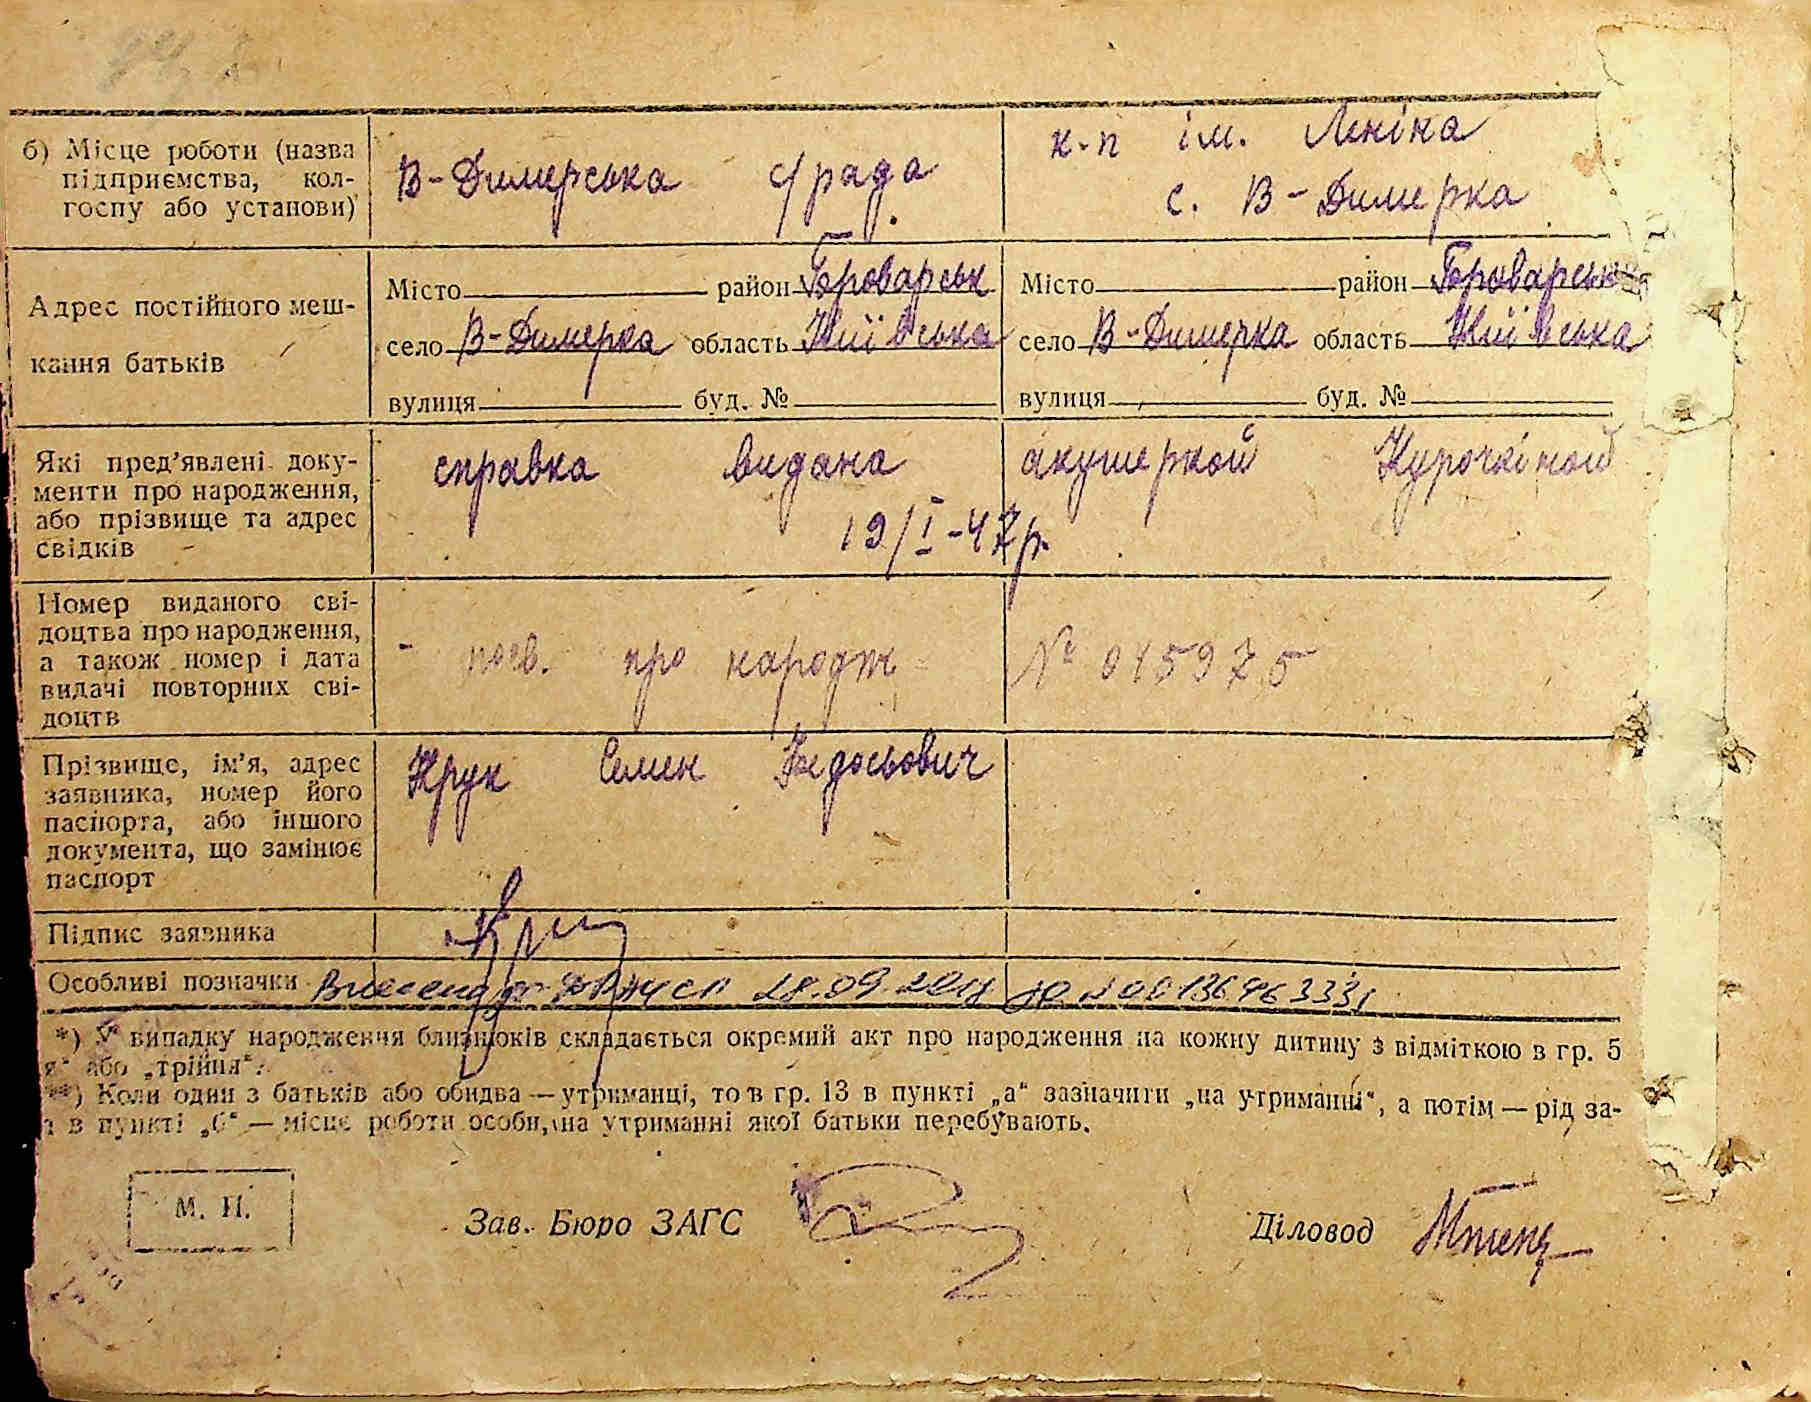 б) Місце роботи (назва
підприємства, кол-
госпу або установи)
В-Димерська с/рада
к-п ім. Леніна
с. В-Димерка
Адрес постійного меш-
кання батьків
Місто район Броварськ
село В-Димерка область Київська
вулиця буд. №
Місто район Броварськ
село В-Димерка область Київська
вулиця буд. №
Які пред’явлені доку-
менти про народження,
або прізвище та адрес
свідків
справка видана акушеркой Курочкіной
19/I-47р.
Номер виданого сві-
доцтва про народження,
а також номер і дата
видачі повторних сві-
доцтв
- посв. про народж № 045975
Прізвище, ім’я, адрес
заявника, номер його
паспорта, або іншого
документа, що замінює
паспорт
Крук Семен Федосьович
Підпис заявника
Особливі позначки
*) У випадку народження близнюків складається окремий акт про народження на кожну дитину з відміткою в гр. 5
я“ або „трійня“.
**) Коли один з батьків або обидва — утриманці, то в гр. 13 в пункті „а“ зазначити „на утриманні“, а потім — рід за-
в пункті „б“ — місце роботи особи, на утриманні якої батьки перебувають.
М. П.
Зав. Бюро ЗАГС
Діловод